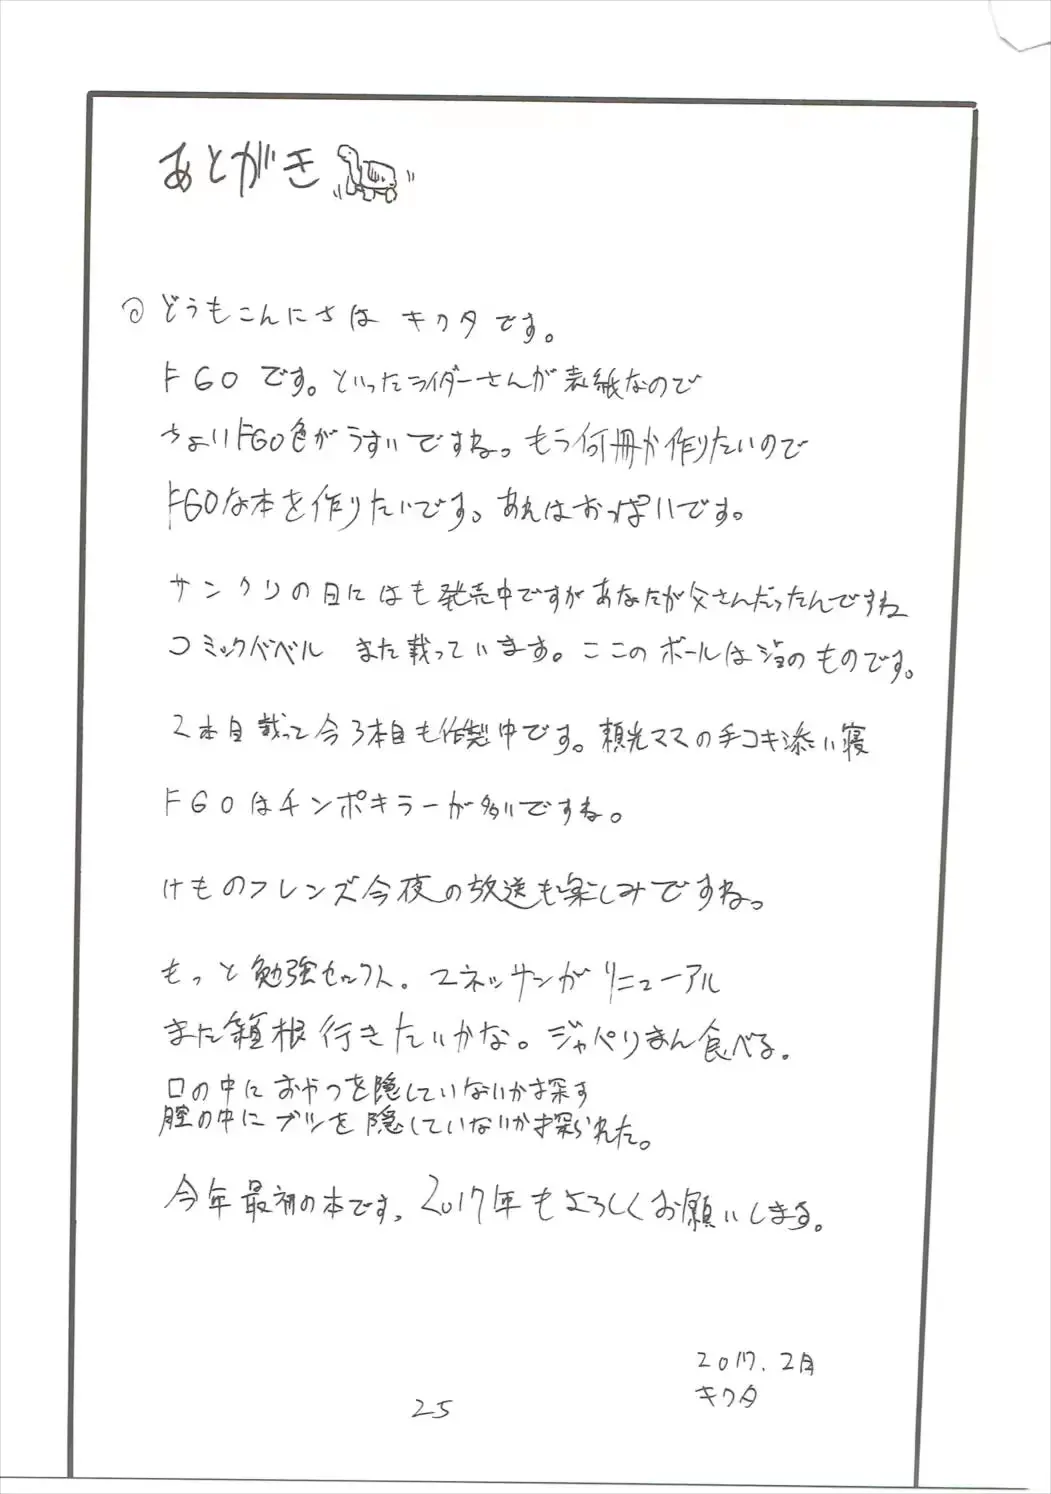 あとがき
どうもこんにちは キクタです。
FGOです。といったライダーさんが表紙なので
ちょいFGO色がうすいですね。もう何冊か作りたいので
FGOな本を作りたいです。あれはおっぱいです。
サンクリの日にはも発売中ですがあなたが父さんだったんですね
コミックバベル また載っています。ここのボールはジョのものです。
2本目載って今3本目も作製中です。頼光ママの手コキ添い寝
FGOはチンポキラーが多いですね。
けものフレンズ今夜の放送も楽しみですね。
もっと勉強セックス。ユネッサンがリニューアル
また箱根行きたいかな。ジャパリまん食べる。
口の中におやつを隠していないか探す
膣の中にブツを隠していないか探られた。
今年最初の本です。2017年もよろしくお願いします。
2017.2月
キクタ
25